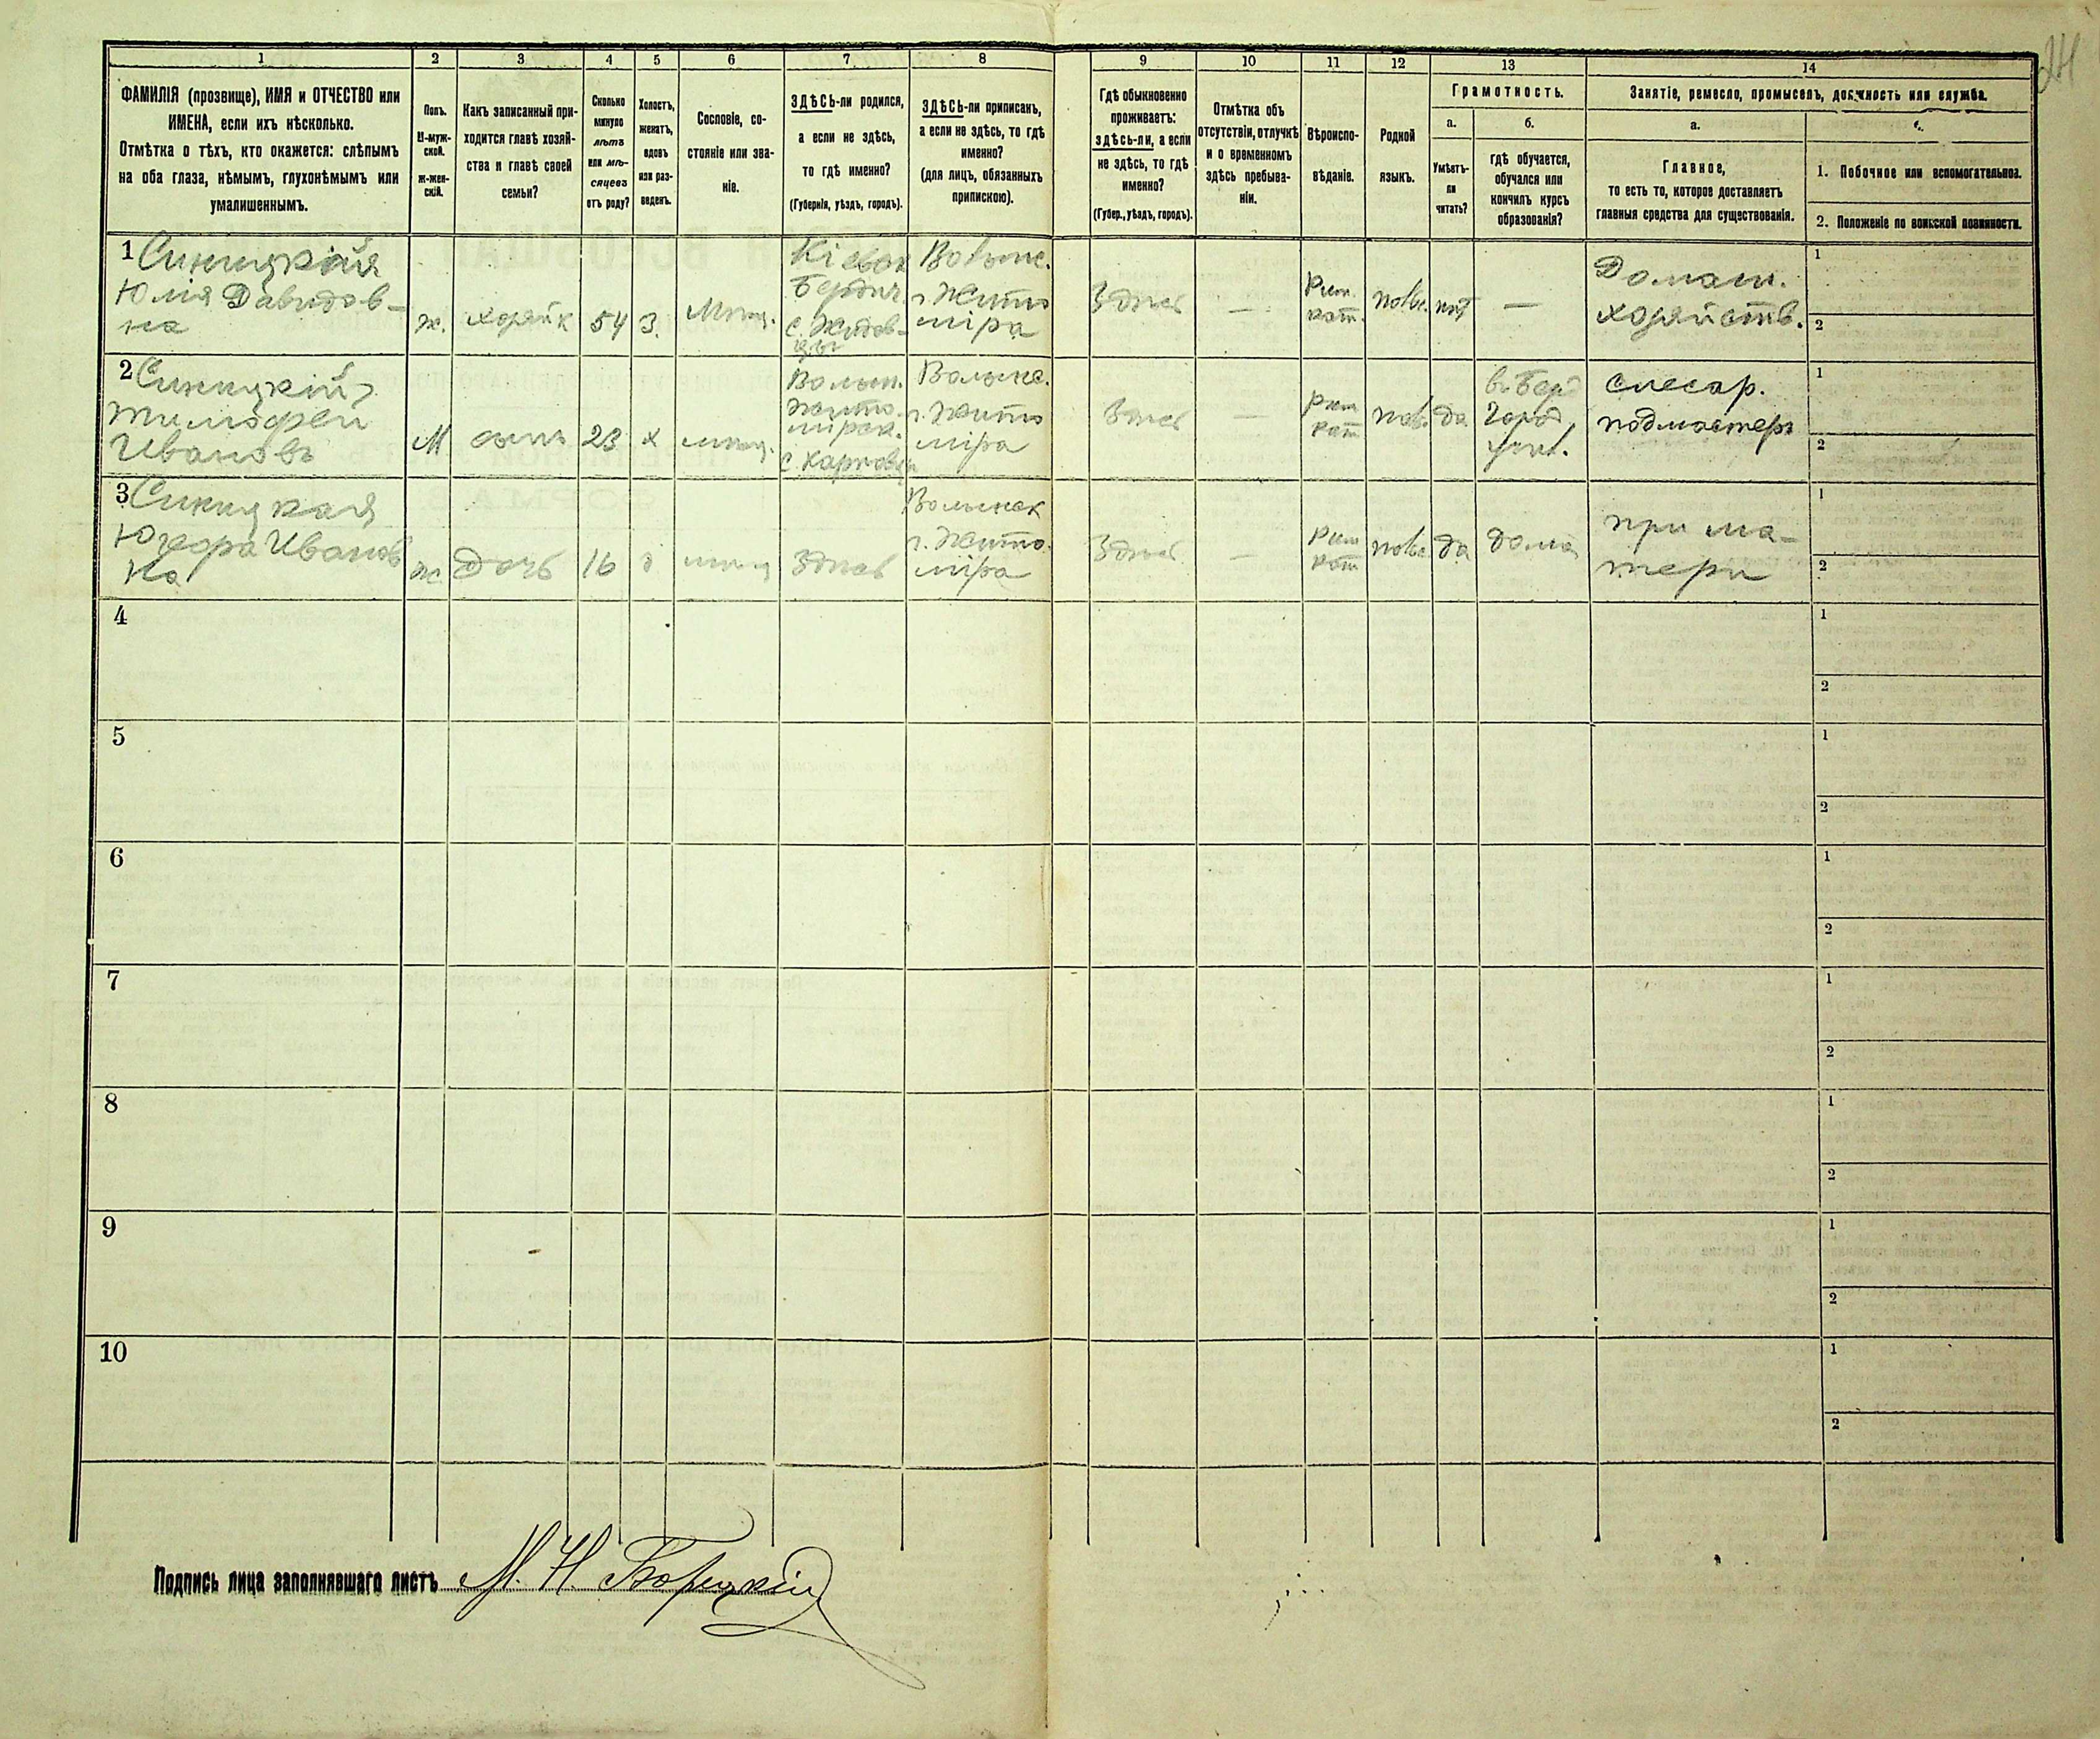 24
1 2 3 4 5 6 7 8 9 10 11 12 13 14
ФАМИЛІЯ (прозвище), ИМЯ и ОТЧЕСТВО или
ИМЕНА, если ихъ нѣсколько.
Отмѣтка о тѣхъ, кто окажется: слѣпымъ
на оба глаза, нѣмымъ, глухонѣмымъ или
умалишеннымъ.
Полъ.
М-муж-
ской.
ж-жен-
скій.
Какъ записанный при-
ходится главѣ хозяй-
ства и главѣ своей
семьи?
Сколько
минуло
лѣтъ
или мѣ-
сяцевъ
отъ роду?
Холостъ,
женатъ,
вдовъ
или раз-
веденъ.
Сословіе, со-
стояніе или зва-
ніе.
ЗДѢСЬ-ли родился,
а если не здѣсь,
то гдѣ именно?
(Губернія, уѣздъ, городъ).
ЗДѢСЬ-ли приписанъ,
а если не здѣсь, то гдѣ
именно?
(для лицъ, обязанныхъ
припискою).
Гдѣ обыкновенно
проживаетъ:
здѣсь-ли, а если
не здѣсь, то гдѣ
именно?
(Губер., уѣздъ, городъ).
Отмѣтка объ
отсутствіи, отлучкѣ
и о временномъ
здѣсь пребыва-
ніи.
Вѣроиспо-
вѣданіе.
Родной
языкъ.
Грамотность.
а.
Умѣетъ-
ли
читать?
б.
гдѣ обучается,
обучался или
кончилъ курсъ
образованія?
Занятіе, ремесло, промыселъ, должность или служба.
а.
Главное,
то есть то, которое доставляетъ
главныя средства для существованія.
1. Побочное или вспомогательное.
2. Положеніе по воинской повинности.
1 Синицкая
Юлія Давидов-
на
ж.
хозяйк
54
З.
Мѣщ.
Кіевск
Бердич.
с. Жидов-
цы
Волынс.
г. Жито
міра
Здѣсь
—
Рим.
кат.
польс.
нѣт
—
Домаш.
хозяйств.
1
2
2 Синицкій
Тимофей
Ивановъ
М
сынъ
23
х
мѣщ.
Волын.
Жито-
мірск.
с. Карповцы
Волынс.
г. Жито
міра
Здѣсь
—
Рим
кат
польс.
да
в. Берд
город
учил.
слесар.
подмастерь
1
2
3 Синицкая
Юзефа Иванов
на
ж.
дочь
16
д
мѣщ
Здѣсь
Волынск
г. Жито-
міра
Здѣсь
—
Рим
кат
польс
да
дома
при ма-
тери
1
2
4
1
2
5
1
2
6
1
2
7
1
2
8
1
2
9
1
2
10
1
2
Подпись лица заполнявшаго листъ М. Н. Борецкій